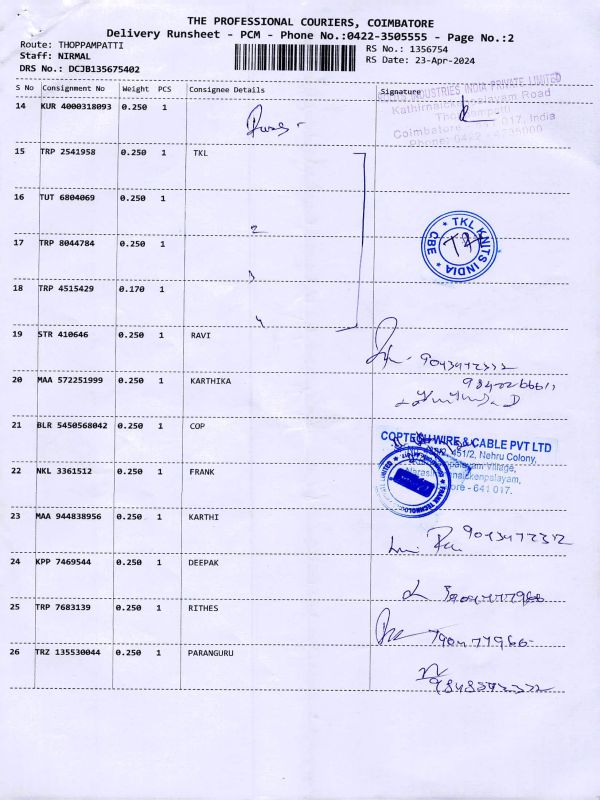 THE PROFESSIONAL COURIERS, COIMBATORE
Delivery Runsheet - PCM - Phone No.:0422-3505555 - Page No.:2
Route: THOPPAMPATTI
RS No.: 1356754
Staff: NIRMAL
RS Date: 23-Apr-2024
DRS No.: DCJB135675402
S No Consignment No Weight PCS Consignee Details Signature
INDUSTRIES INDIA PRIVATE LIMITED
Road
Coimbatore 017, India
14 KUR 4000318093 0.250 1
15 TRP 2541958 0.250 1 TKL
16 TUT 6804069 0.250 1
2
17 TRP 8044784 0.250 1
TKL KNITS INDIA
CBE
3
18 TRP 4515429 0.170 1
4
19 STR 410646 0.250 1 RAVI
20 MAA 572251999 0.250 1 KARTHIKA
21 BLR 5450568042 0.250 1 COP
COPTECH WIRE & CABLE PVT LTD
451/2, Nehru Colony,
Village,
641 017.
22 NKL 3361512 0.250 1 FRANK
23 MAA 944838956 0.250 1 KARTHI
24 KPP 7469544 0.250 1 DEEPAK
25 TRP 7683139 0.250 1 RITHES
26 TRZ 135530044 0.250 1 PARANGURU